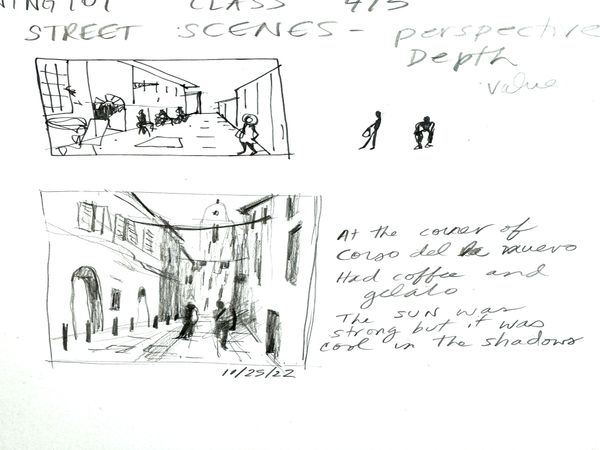 CLASS 4/5
STREET SCENES - perspective
Depth
value
At the corner of
Corso del nuevo
Had coffee and
gelato
The sun was
strong but it was
cool in the shadows
10/25/22